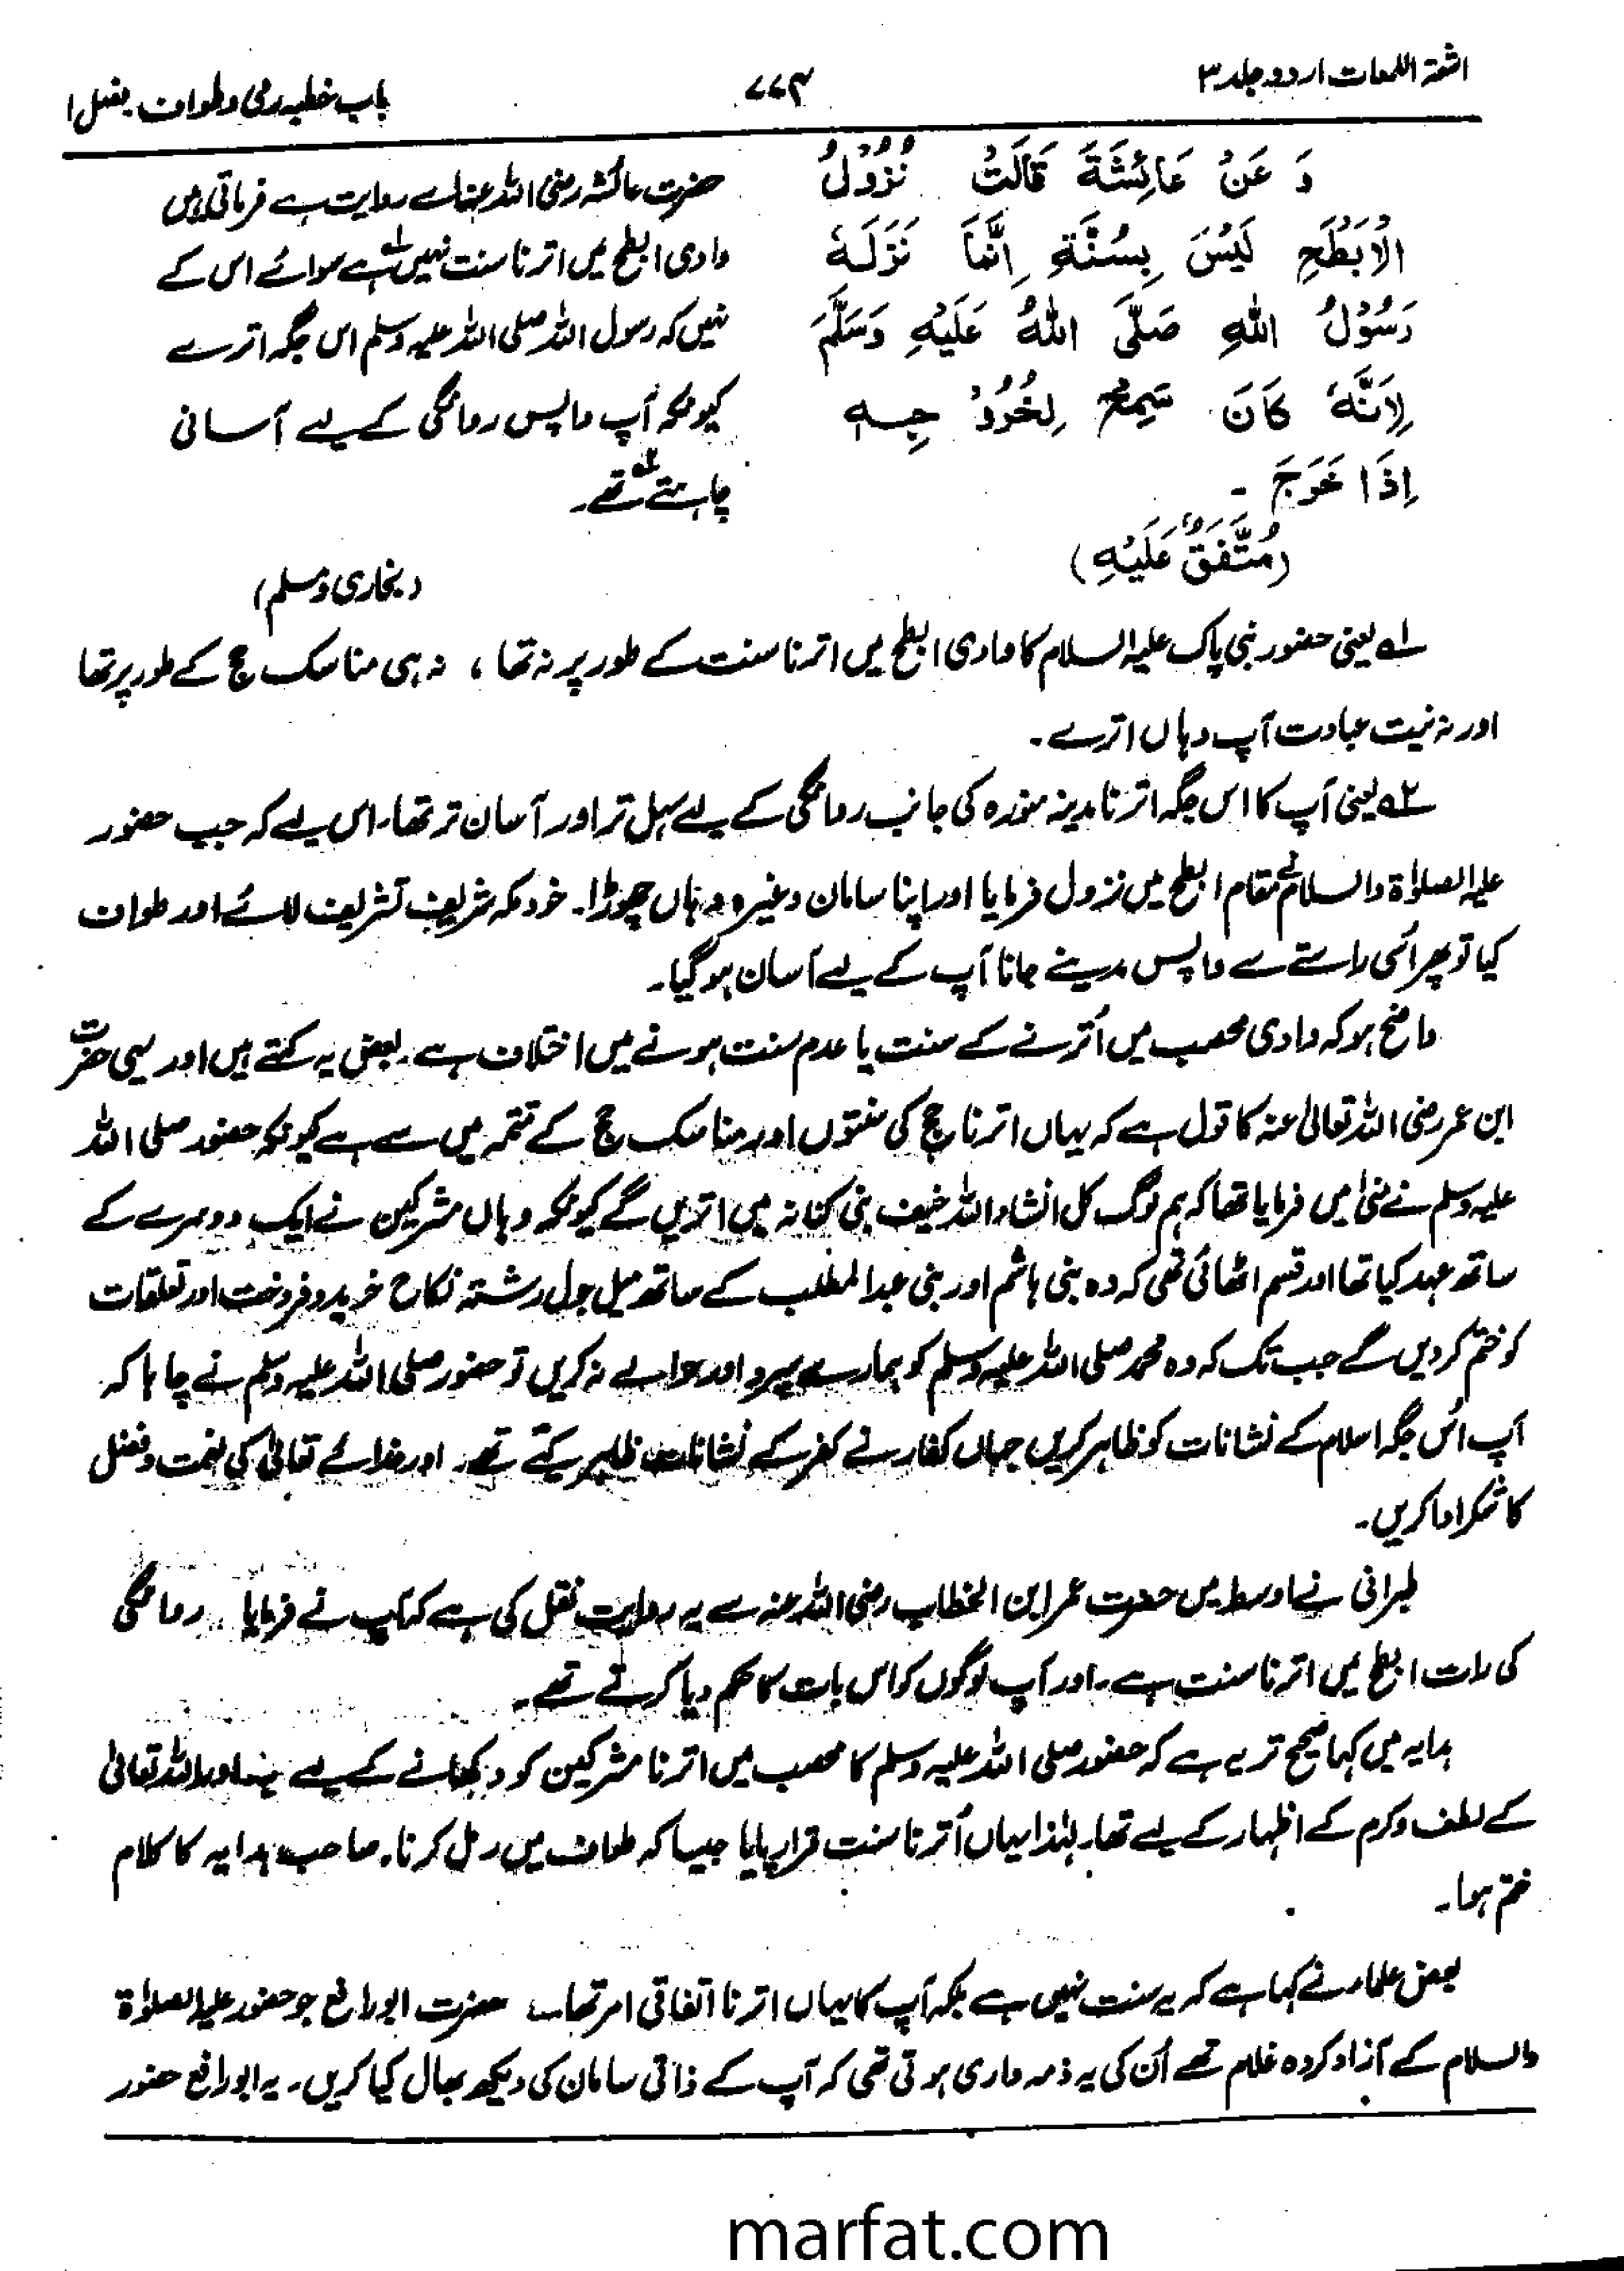 اشعۃ اللمعات اردو جلد ۳
۷۷۴
باب خطبہ رمی و طواف۔ فصل ۱
وَ عَنْ عَائِشَةَ قَالَتْ نُزُوْلُ
الْاَبْطَحِ لَيْسَ بِسُنَّةٍ اِنَّمَا نَزَلَهٗ
رَسُوْلُ اللهِ صَلَّى اللهُ عَلَيْهِ وَسَلَّمَ
لِاَنَّهٗ كَانَ سَمِحَ لِخُرُوْجِهٖ
اِذَا خَرَجَ ۔
(مُتَّفَقٌ عَلَيْهِ)
حضرت عائشہ رضی اللہ عنہا سے روایت ہے فرماتی ہیں
وادی ابطح میں اترنا سنت نہیں ہے۱؎ سوائے اس کے
نہیں کہ رسول اللہ صلی اللہ علیہ وسلم اس جگہ اترے
کیونکہ آپ واپس روانگی کے لیے آسانی
چاہتے تھے۲؎۔
(بخاری و مسلم)
۱؎ یعنی حضور نبی پاک علیہ السلام کا وادی ابطح میں اترنا سنت کے طور پر نہ تھا، نہ ہی مناسک حج کے طور پر تھا
اور نہ نیت عبادت آپ وہاں اترے۔
۲؎ یعنی آپ کا اس جگہ اترنا مدینہ منورہ کی جانب روانگی کے لیے سہل تر اور آسان تر تھا۔ اس لیے کہ جب حضور
علیہ الصلوٰۃ والسلام نے مقام ابطح میں نزول فرمایا اور اپنا سامان وغیرہ وہاں چھوڑا۔ خود مکہ شریف تشریف لائے اور طواف
کیا تو پھر اُسی راستے سے واپس مدینے جانا آپ کے لیے آسان ہو گیا۔
واضح ہو کہ وادی محصب میں اُترنے کے سنت یا عدم سنت ہونے میں اختلاف ہے۔ بعض یہ کہتے ہیں اور یہی حضرت
ابن عمر رضی اللہ تعالیٰ عنہ کا قول ہے کہ یہاں اترنا حج کی سنتوں اور مناسک حج کے تتمہ میں سے ہے کیونکہ حضور صلی اللہ
علیہ وسلم نے منیٰ میں فرمایا تھا کہ ہم لوگ کل انشاء اللہ خیف بنی کنانہ میں اتریں گے کیونکہ وہاں مشرکین نے ایک دوسرے کے
ساتھ عہد کیا تھا اور قسم اٹھائی تھی کہ وہ بنی ہاشم اور بنی عبدالمطلب کے ساتھ میل جول رشتہ نکاح خرید و فروخت اور تعلقات
کو ختم کر دیں گے جب تک کہ وہ محمد صلی اللہ علیہ وسلم کو ہمارے سپرد اور حوالے نہ کریں تو حضور صلی اللہ علیہ وسلم نے چاہا کہ
آپ اُس جگہ اسلام کے نشانات کو ظاہر کریں جہاں کفار نے کفر کے نشانات ظاہر کیے تھے۔ اور خدائے تعالیٰ کی نعمت و فضل
کا شکر ادا کریں۔
طبرانی نے اوسط میں حضرت عمر ابن الخطاب رضی اللہ عنہ سے یہ روایت نقل کی ہے کہ آپ نے فرمایا۔ روانگی
کی رات ابطح میں اترنا سنت ہے۔ اور آپ لوگوں کو اس بات کا حکم دیا کرتے تھے۔
ہدایہ میں کہا صحیح تر یہ ہے کہ حضور صلی اللہ علیہ وسلم کا محصب میں اترنا مشرکین کو دکھانے کے لیے اور اللہ تعالیٰ
کے لطف و کرم کے اظہار کے لیے تھا۔ لہٰذا یہاں اُترنا سنت قرار پایا جیسا کہ طواف میں رمل کرنا۔ صاحب ہدایہ کا کلام
ختم ہوا۔
بعض علماء نے کہا ہے کہ یہ سنت نہیں ہے بلکہ آپ کا یہاں اترنا اتفاقی امر تھا۔ حضرت ابورافع جو حضور علیہ الصلوٰۃ
والسلام کے آزاد کردہ غلام تھے اُن کی یہ ذمہ داری ہوتی تھی کہ آپ کے ذاتی سامان کی دیکھ بھال کیا کریں۔ یہ ابورافع حضور
marfat.com